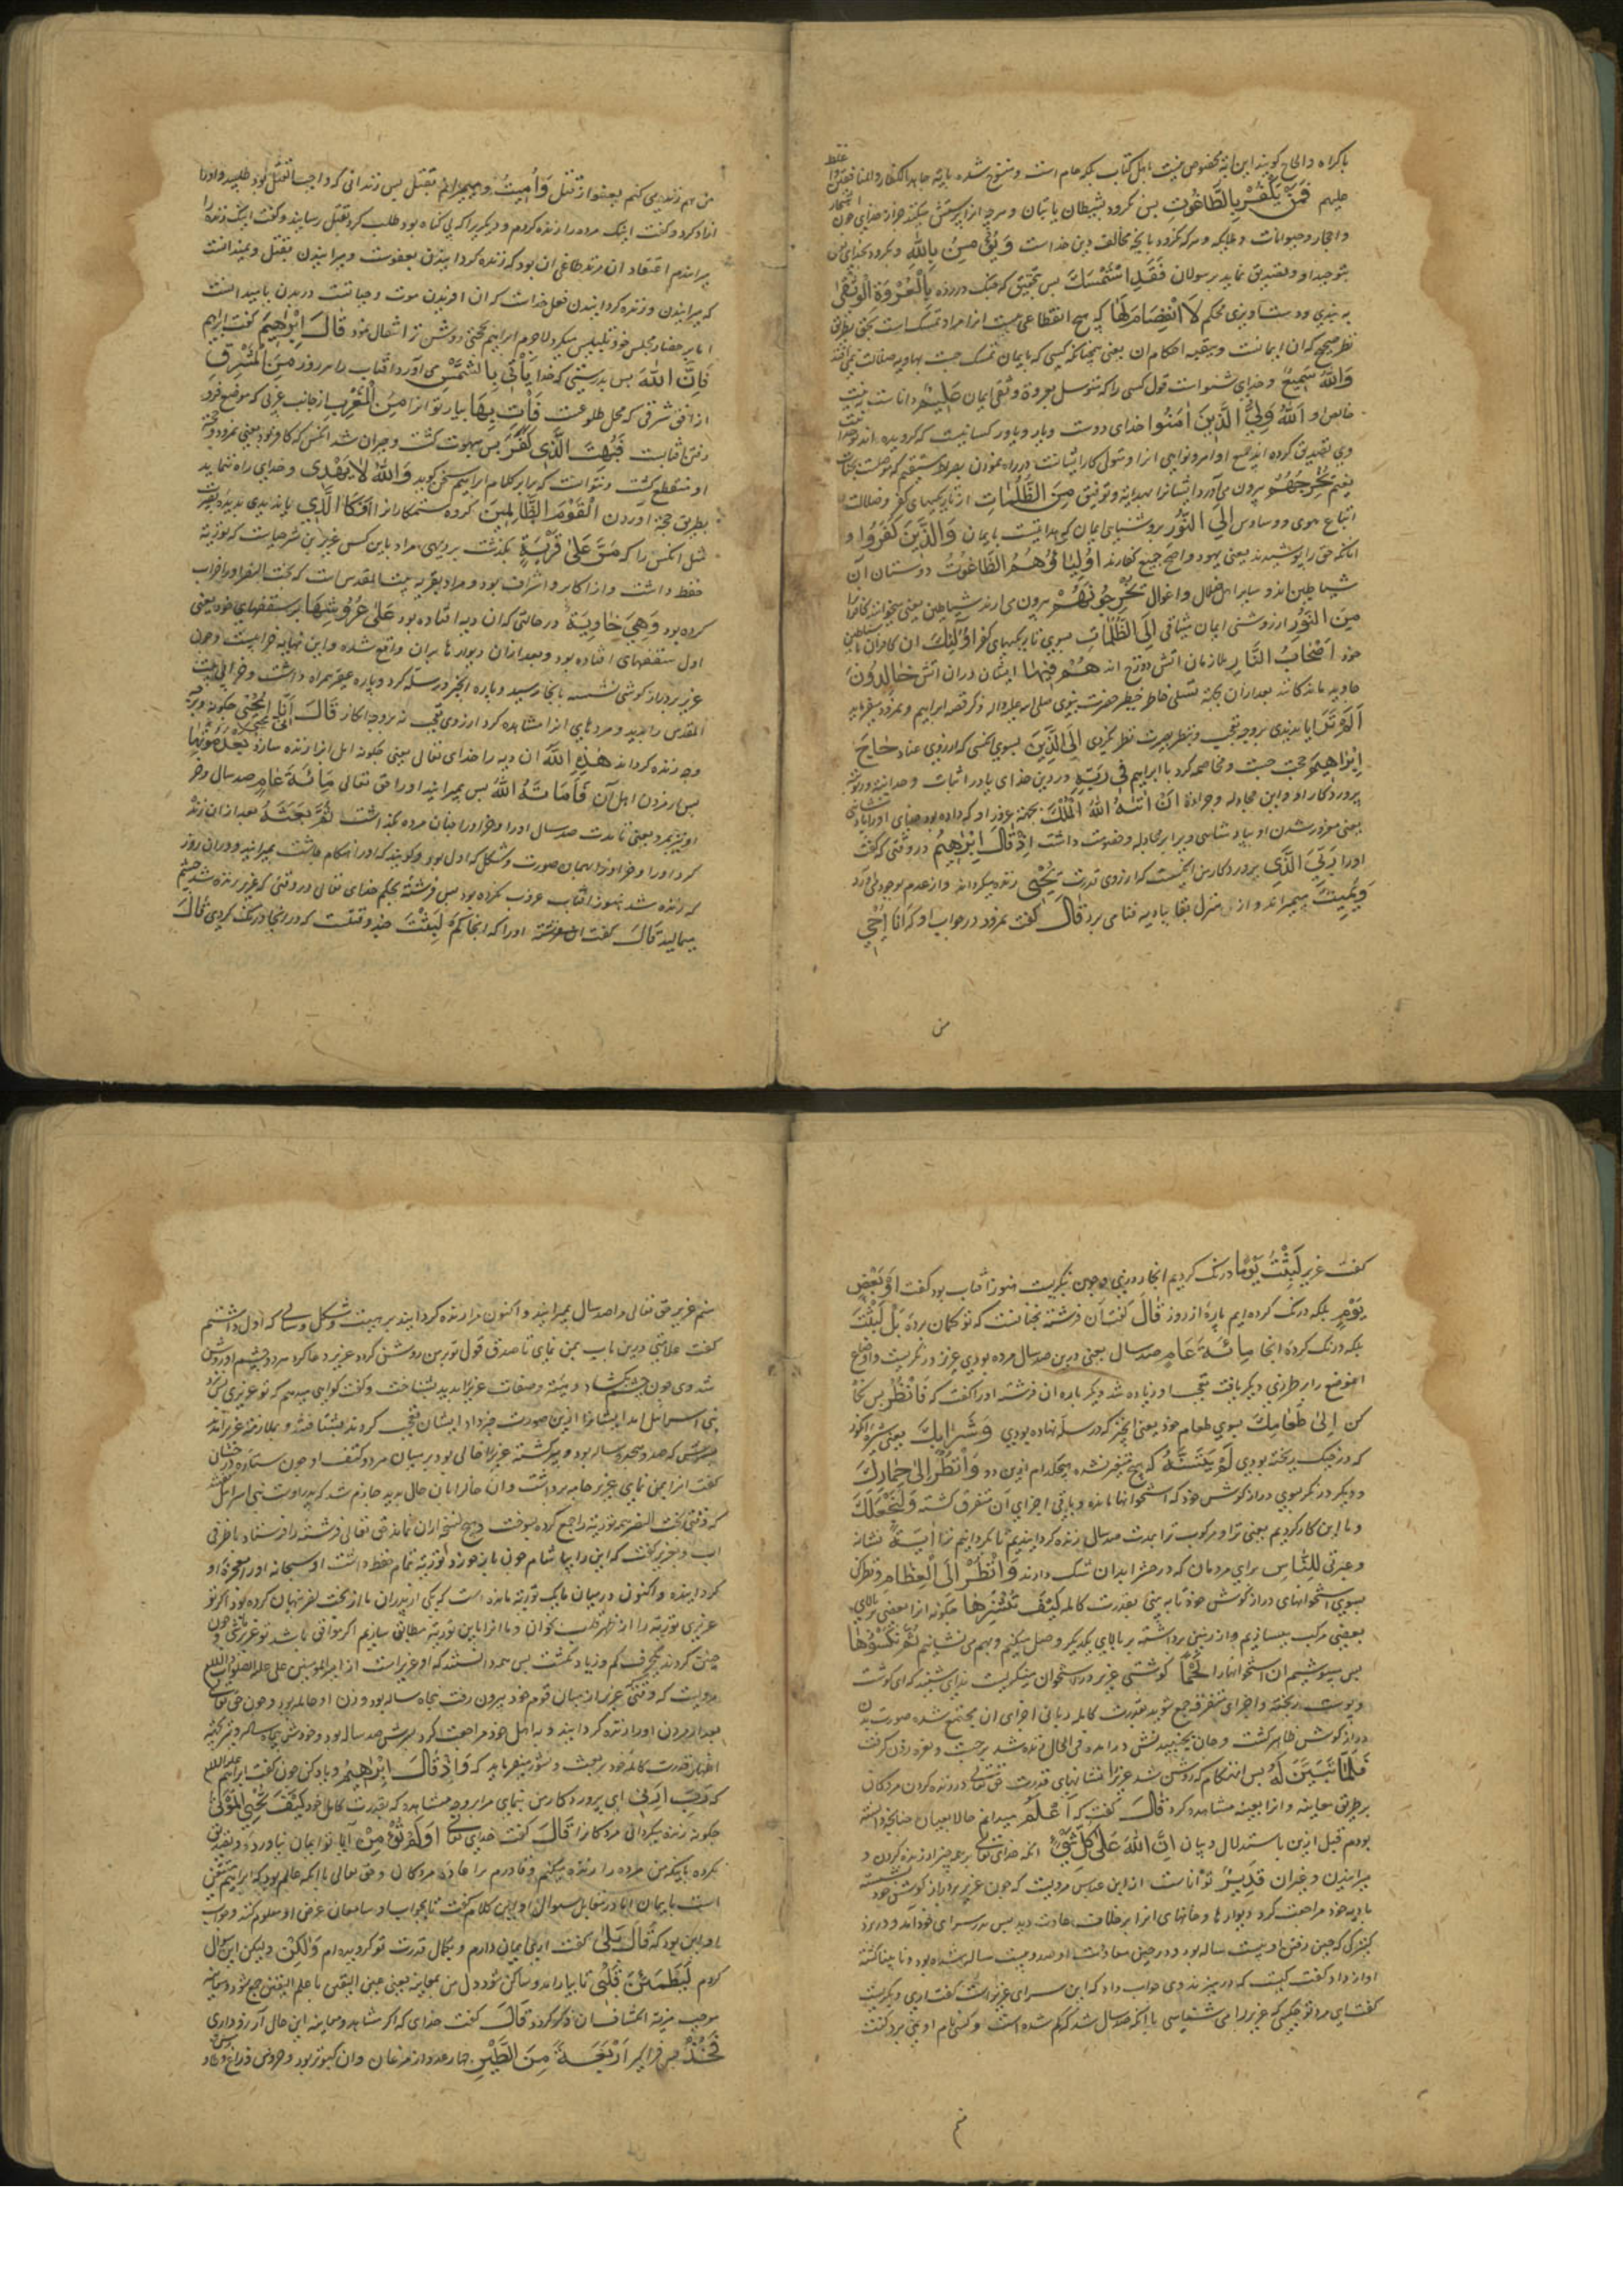 باکراه و الحاح کویند این آیه مخصوص نیست باهل کتاب بلکه عام است و منسوخ شده بایة جاهد الکفار والمنافقین واغلظ
علیهم فَمَنْ یَکْفُرْ بِالطَّاغُوتِ پس هرکه کرود بشیطان یا بتان و هرچه انرا پرستش میکنند جز از خدای چون اشجار
و احجار و حیوانات و ملایکه و هرکه نکرود بانچه مخالف دین خداست وَیُؤْمِنْ بِاللّهِ و بکرود بخدای
بتوحید او و تصدیق نماید برسولان فَقَدِ اسْتَمْسَکَ پس بتحقیق که چنک در زده بِالْعُرْوَةِ الْوُثْقٰی
به بندی و دستاویزی محکم لَا انْفِصَامَ لَهَا که هیچ انقطاعی نیست انرا مراد تمسک است بحق بطریق
نظر صحیح که ان ایمانست و ببقیه احکام ان یعنی همچنانکه کسی که بایمان تمسک جست بهاویه ضلالت نمی افتد
وَاللّهُ سَمِیعٌ و خدای شنواست قول کسی را که متوسل بعروة وثقی ایمان عَلِیمٌ داناست به نیت
خالص او اَللّهُ وَلِیُّ الَّذِینَ اٰمَنُوا خدای دوست و یار و یاور کسانیست که کرویده اند
وی تصدیق کرده اند جمیع اوامر و نواهی انرا و متولی کار ایشانست در راه نمودن بصراط مستقیم که موصلست بجنات
نعیم یُخْرِجُهُمْ بیرون می آورد ایشانرا بهدایة و توفیق مِنَ الظُّلُمَاتِ از تاریکیهای کفر و ضلالت
اتباع هوی و وساوس اِلَی النُّورِ بروشنیهای ایمان که هدایتست بایمان وَالَّذِینَ کَفَرُوا و
انانکه حق را پوشیدند یعنی یهود و اصح جمیع کفارند اَوْلِیٰاؤُهُمُ الطَّاغُوتُ دوستان ان
شیاطین اند و سایر اهل ضلال و اغوال یُخْرِجُونَهُمْ بیرون می ارند شیاطین یعنی میخوانند کافرانرا
مِنَ النُّورِ از روشنی ایمان میثاقی اِلَی الظُّلُمَاتِ بسوی تاریکیهای کفر اُولٰئِکَ ان کافران با شیاطین
خود اَصْحَابُ النَّارِ ملازمان اتش دوزخ اند هُمْ فِیهَا ایشان دران اتش خَالِدُونَ
جاوید ماندکانند بعد ازان بجهة تسلی خاطر خطیر حضرت نبوی صلی الله علیه و اله ذکر قصه ابراهیم و نمرود میفرماید
اَلَمْ تَرَ ایا ندیدی بروجه تعجب و بنظر بصیرت نظر نکردی اِلَی الَّذِی بسوی انکسی که از روی عناد حٰاجَّ
اِبْرٰاهِیمَ حجت جست و مخاصمه کرد با ابراهیم فِی رَبِّهِ در دین خدای یا در اثبات وحدانیة و ربوبیة
پروردکار او و این مجادله و جراءة اَنْ اٰتٰیهُ اللّهُ الْمُلْکَ بجهة غرور او که داده بود خدای او را پادشاهی
یعنی مغرور شدن او بپادشاهی ویرا بر مجادله و خصومت داشت اِذْ قَالَ اِبْرٰهِیمُ در وقتی که گفت
او را رَبِّیَ الَّذِی پروردکار من انکسست که از روی قدرت یُحْیِی زنده میکرداند و از عدم بوجود می اورد
وَیُمِیتُ میمیراند و از منزل بقا ببادیه فنا می برد قٰالَ کفت نمرود در جواب او که اَنَا اُحْیِ
من
من هم زنده می کنم بعفو از قتل وَاُمِیتُ و میمیرانم بقتل پس زندانی که واجب القتل بود طلبید و او را
ازاد کرد و کفت اینک مرده را زنده کردم و دیکریرا که بی کناه بود طلب کرد بقتل رسانید و کفت اینک زنده را
میراندم اعتقاد ان مرتد طاغی ان بود که زنده کردانیدن بعفوست و میرانیدن بقتل و نمیدانست
که میرانیدن و زنده کردانیدن فعل خداست که ان اوردن موت و حیاتست در بدن
اما بر حضار مجلس خود تلبیس میکرد لاجرم ابراهیم بحجتی روشن تر انتقال نمود قَالَ اِبْرٰهِیمُ کفت ابراهیم
فَاِنَّ اللّهَ پس بدرستی که خدا یَأْتِی بِالشَّمْسِ می اورد افتاب را هر روز مِنَ الْمَشْرِقِ
از افق شرقی که محل طلوعست فَأْتِ بِهَا بیار تو انرا مِنَ الْمَغْرِبِ از جانب غربی که موضع فرو
رفتن افتابست فَبُهِتَ الَّذِی کَفَرَ پس مبهوت کشت و حیران شد انکس که کافر بود یعنی نمرود و حجة
او منقطع کشت و نتوانست که برابر کلام ابراهیم سخن کوید وَاللّهُ لَا یَهْدِی و خدای راه ننماید
بطریق حجة اوردن الْقَوْمَ الظَّالِمِینَ کروه ستمکارانرا اَوْ کَالَّذِی یا ندیدی بدیده بصیرت
مثل انکس را که مَرَّ عَلٰی قَرْیَةٍ بکذشت بردیهی مراد باین کس عزیر ابن شرحیاست که توریة
حفظ داشت و از اکابر و اشراف بود و مراد بقریه بیت المقدس است که بخت النصر او را خراب
کرده بود وَهِیَ خَاوِیَةٌ در حالتی که ان دیه افتاده بود عَلٰی عُرُوشِهَا بر سقفهای خود یعنی
اول سقفهای افتاده بود و بعد ازان دیوارها بران واقع شده و این نهایه خرابیست و چون
عزیر بر دراز کوشی نشسته بانجا رسید و پاره انجیر در سله کرد و پاره عصیر همراه داشت و خرابی بیت
المقدس را بدید و مردهای انرا مشاهده کرد از روی تعجب نه بر وجه انکار قَالَ اَنّٰی یُحْیِی چکونه و برچه
وجه زنده کرداند هٰذِهِ اللّهُ ان دیه را خدای تعالی یعنی چکونه اهل انرا زنده سازد بَعْدَ مَوْتِهَا
پس از مردن اهل آن فَاَمَاتَهُ اللّهُ پس بمیرانید او را حق تعالی مِائَةَ عَامٍ صد سال و خر
او نیز بمرد یعنی تا مدت صد سال او را و خر او را چنان مرده بکذاشت ثُمَّ بَعَثَهُ بعد ازان زنده
کرد او را و خر او را بهمان صورت و شکل که اول بود و کویند که او را هنکام چاشت بمیرانید و دران روز
که زنده شد هنوز افتاب غروب نکرده بود پس فرشته بحکم خدای تعالی در وقتی که عزیر زنده شد چشم
میمالید قَالَ کفت ان فرشته او را که اینجا کَمْ لَبِثْتَ چند وقتست که در اینجا درنک کردی قَالَ
کفت عزیر لَبِثْتُ یَوْمًا درنک کردیم اینجا روزی و چون نکریست هنوز افتاب بود کفت اَوْ بَعْضَ
یَوْمٍ بلکه درنک کرده ایم پاره از روز قَالَ کفت آن فرشته نچنانست که تو کمان برده بَلْ لَبِثْتَ
بلکه درنک کرده اینجا مِائَةَ عَامٍ صد سال یعنی درین صد سال مرده بودی عزیر در نکریست و اوضاع
انموضع را بر طرزی دیکر یافت تعجب او زیاده شد دیکر باره ان فرشته او را کفت که فَانْظُرْ پس نکاه
کن اِلٰی طَعَامِکَ بسوی طعام خود یعنی انجیر که در سله نهاده بودی وَشَرَابِکَ یعنی شیره انکور
که در خیک ریخته بودی لَمْ یَتَسَنَّهْ که هیچ متغیر نشده هیچکدام ازین دو وَانْظُرْ اِلٰی حِمَارِکَ
و دیکر در نکر بسوی دراز کوش خود که استخوانها مانده و باقی اجزای آن متفرق کشته وَلِنَجْعَلَکَ
و ما این کار کردیم یعنی ترا و مرکوب ترا بمدت صد سال زنده کردانیدیم تا بکردانیم ترا اٰیَةً نشانه
و عبرتی لِلنَّاسِ برای مردمان که در حشر ابدان شک دارند وَانْظُرْ اِلَی الْعِظَامِ و نظر کن
بسوی استخوانهای دراز کوش خود تا به بینی بقدرت کامله کَیْفَ نُنْشِزُهَا چکونه انرا بعضی بر بالای
بعضی مرکب میسازیم و از زمین برداشته بر بالای یکدیکر وصل میکنیم و بهم می نشانیم ثُمَّ نَکْسُوهَا
پس میپوشیم ان استخوانها را لَحْمًا کوشتی عزیر دران استخوان مینکریست ندای شنید که ای کوشت
و پوست ریخته و اجزای متفرقه جمع شوید بقدرت کامله ربانی اجزای ان مجتمع شده صورت بدن
دراز کوش ظاهر کشت و جان بجنبیدنش درامده فی الحال زنده شد برجست و نعره زدن کرفت
فَلَمَّا تَبَیَّنَ لَهُ پس انهنکام که روشن شد عزیر را نشانهای قدرت حق تعالی در زنده کردن مردکان
بر طریق معاینه و انرا بعینه مشاهده کرد قَالَ کفت که اَعْلَمُ میدانم حالا بعیان چنانچه دانسته
بودم قبل ازین باستدلال و بیان اَنَّ اللّهَ عَلٰی کُلِّ شَیْءٍ انکه خدای تعالی بر همه چیز از زنده کردن و
میرانیدن و غیران قَدِیرٌ تواناست از ابن عباس مرویست که چون عزیر بر دراز کوش خود نشسته
بادیه خود مراجعت کرد دیوارها و خانهای انرا بر خلاف عادت دید پس بدر سرای خود آمد و در بزد
کنیزکی که حین رفتن او بیست ساله بود و در حین معاودت او صد و بیست ساله شده بود و نابینا کشته
اواز داد کفت کیست که در میزند وی جواب داد که این سرای عزیر است کفت اری و بکریست
کفت ای مرد تو چکسی که عزیر را می شناسی با انکه صد سال شد که کم شده است و کسی نام او نمی برد کفت
منم
منم عزیر حق تعالی مرا صد سال بمیرانید و اکنون مرا زنده کردانید بر هیئت و شکل و سالی که اول داشتم
کفت علامتی درین باب بمن نمای تا صدق قول تو بر من روشن کردد عزیر دعا کرد هر دو چشم او روشن
شد وی چون چشم بکشاد و هیئة و صفات عزیر را بدید بشناخت و کفت کواهی میدهم که تو عزیری پس نزد
بنی اسرائیل امد ایشانرا ازین صورت خبر داد ایشان تعجب کردند بشتافتند و بملازمة عزیر آمدند
پسرش که صد و هجده ساله بود و پیر کشته عزیر را خالی بود در میان هر دو کتف او چون ستاره درخشان
کفت انرا بمن نمای عزیر جامه برداشت و ان خال را بان حال بدید جازم شد که پدر اوست بنی اسرائیل کفتند
که وقتی بخت النصر همه توریة را جمع کرده بسوخت و هیچ نسخه ازان نماند حق تعالی فرشته را فرستاد با ظرفی
اب و عزیر کفت که این را بیاشام چون باز خورد توریة تمام حفظ داشت و سبحانه او را معجزه او
کردانیده و اکنون در میان ما یک توریة مانده است که یکی از پدران ما از بخت نصر پنهان کرده بود اکر تو
عزیری توریة را از ظهر قلب بخوان و ما انرا باین توریة مطابق سازیم اکر موافق باشد تو عزیری چون
چنین کردند بیک حرف کم و زیاد نکشت پس همه دانستند که او عزیر است از امیر المؤمنین علی علیه الصلوة والسلام
مرویست که وقتی عزیر از میان قوم خود بیرون رفت پنجاه ساله بود و زن او حامله بود و چون حق تعالی
بعد از مردن او را زنده کردانید و به اهل خود مراجعت کرد پسرش صد ساله بود و خودش پنجاه ساله و دیکر بجهة
اظهار قدرت کامله خود بر بعث و نشور میفرماید که وَاِذْ قَالَ اِبْرٰهِیمُ و یاد کن چون کفت ابراهیم علیه السلام
که رَبِّ اَرِنِی ای پروردکار من بنمای مرا بر وجه مشاهده که بقدرت کامل خود کَیْفَ تُحْیِی الْمَوْتٰی
چکونه زنده میکردانی مردکانرا قَالَ کفت خدای تعالی اَوَلَمْ تُؤْمِنْ آیا تو ایمان نیاورده و تصدیق
نکرده باینکه من مرده را زنده میکنم و قادرم بر اعاده مردکان و حق تعالی با انکه عالم بود که ابراهیم متیقن
است بایمان اما در مقابل سوال او این کلام کفت تا بجواب او سامعان غرض او معلوم کنند و جواب
او این بود که قَالَ بَلٰی کفت اری ایمان دارم و بکمال قدرت تو کرویده ام وَلٰکِنْ ولیکن این سؤال
کردم لِیَطْمَئِنَّ قَلْبِی تا بیارامد و ساکن شود دل من بمعاینه یعنی عین الیقین با علم الیقین جمع شود و معاینه
موجب مزید انکشاف ان ذکر کردد قَالَ کفت خدای که اکر مشاهده و معاینه این حال آرزو داری
فَخُذْ پس فراکیر اَرْبَعَةً مِنَ الطَّیْرِ چهار عدد از مرغان و ان کبوتر بود و خروس و زاغ و طاوس